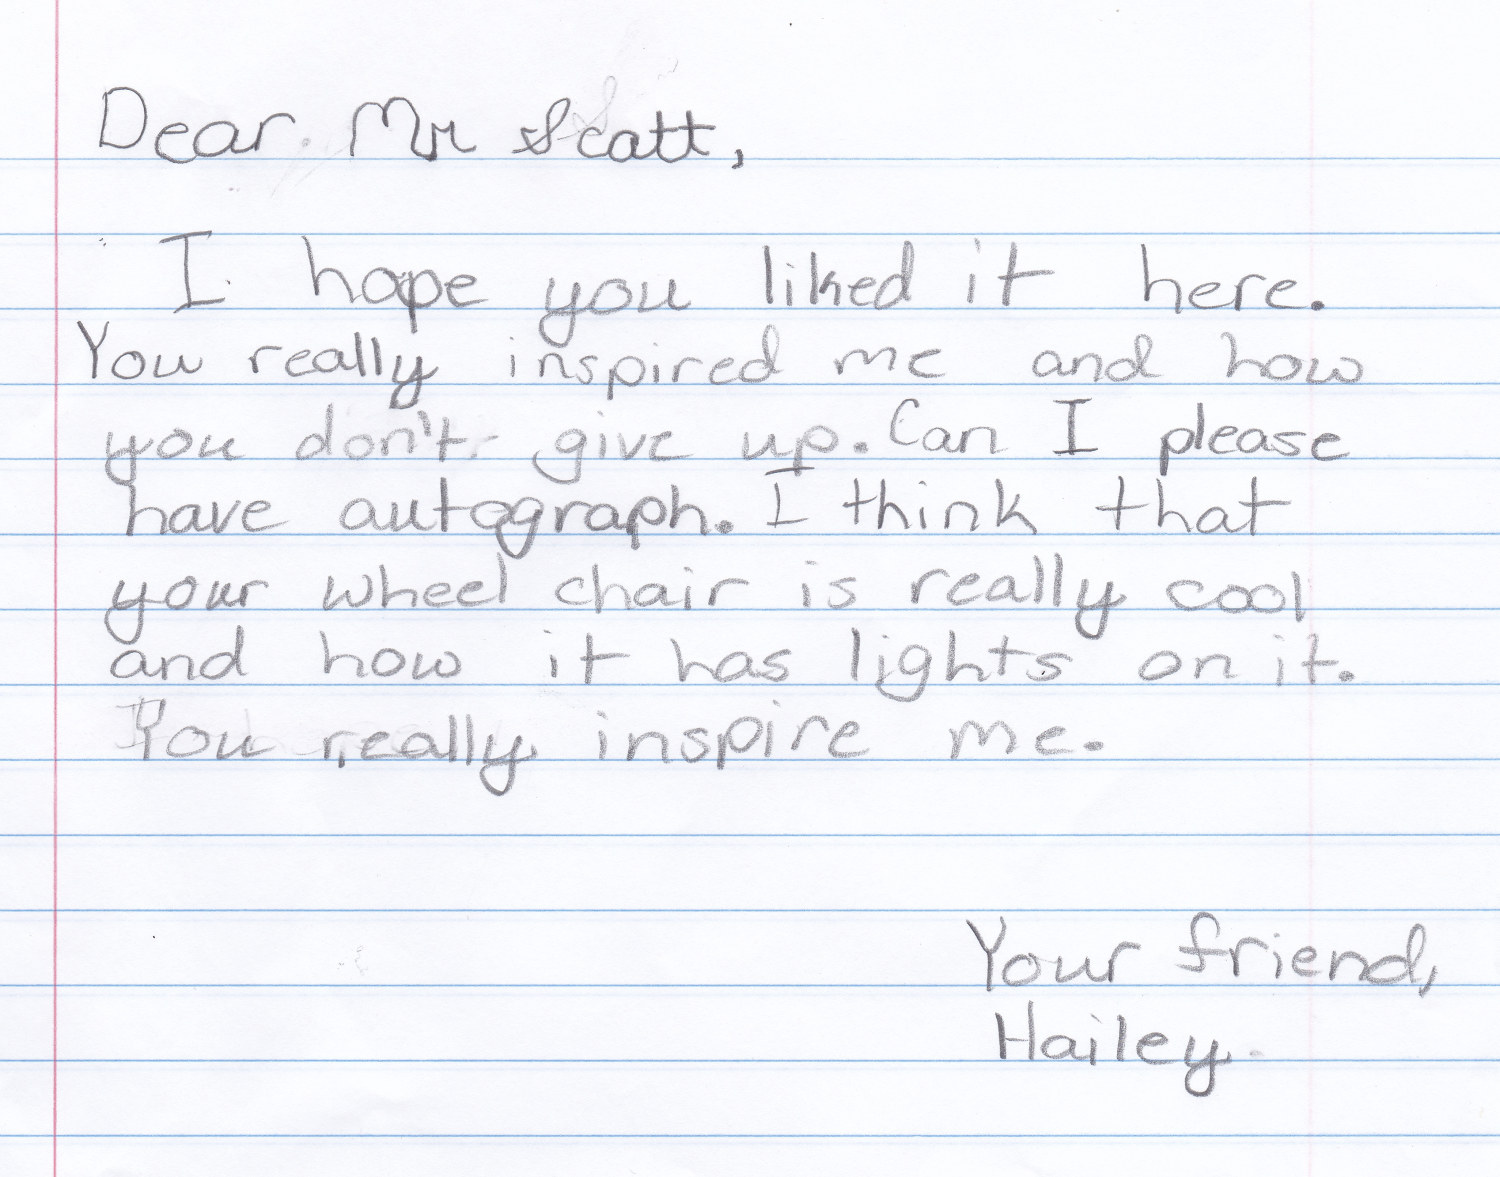 Dear Mr Scatt,
I hope you liked it here.
You really inspired me and how
you don't give up. Can I please
have autograph. I think that
your wheel chair is really cool
and how it has lights on it.
You really inspire me.
Your friend,
Hailey